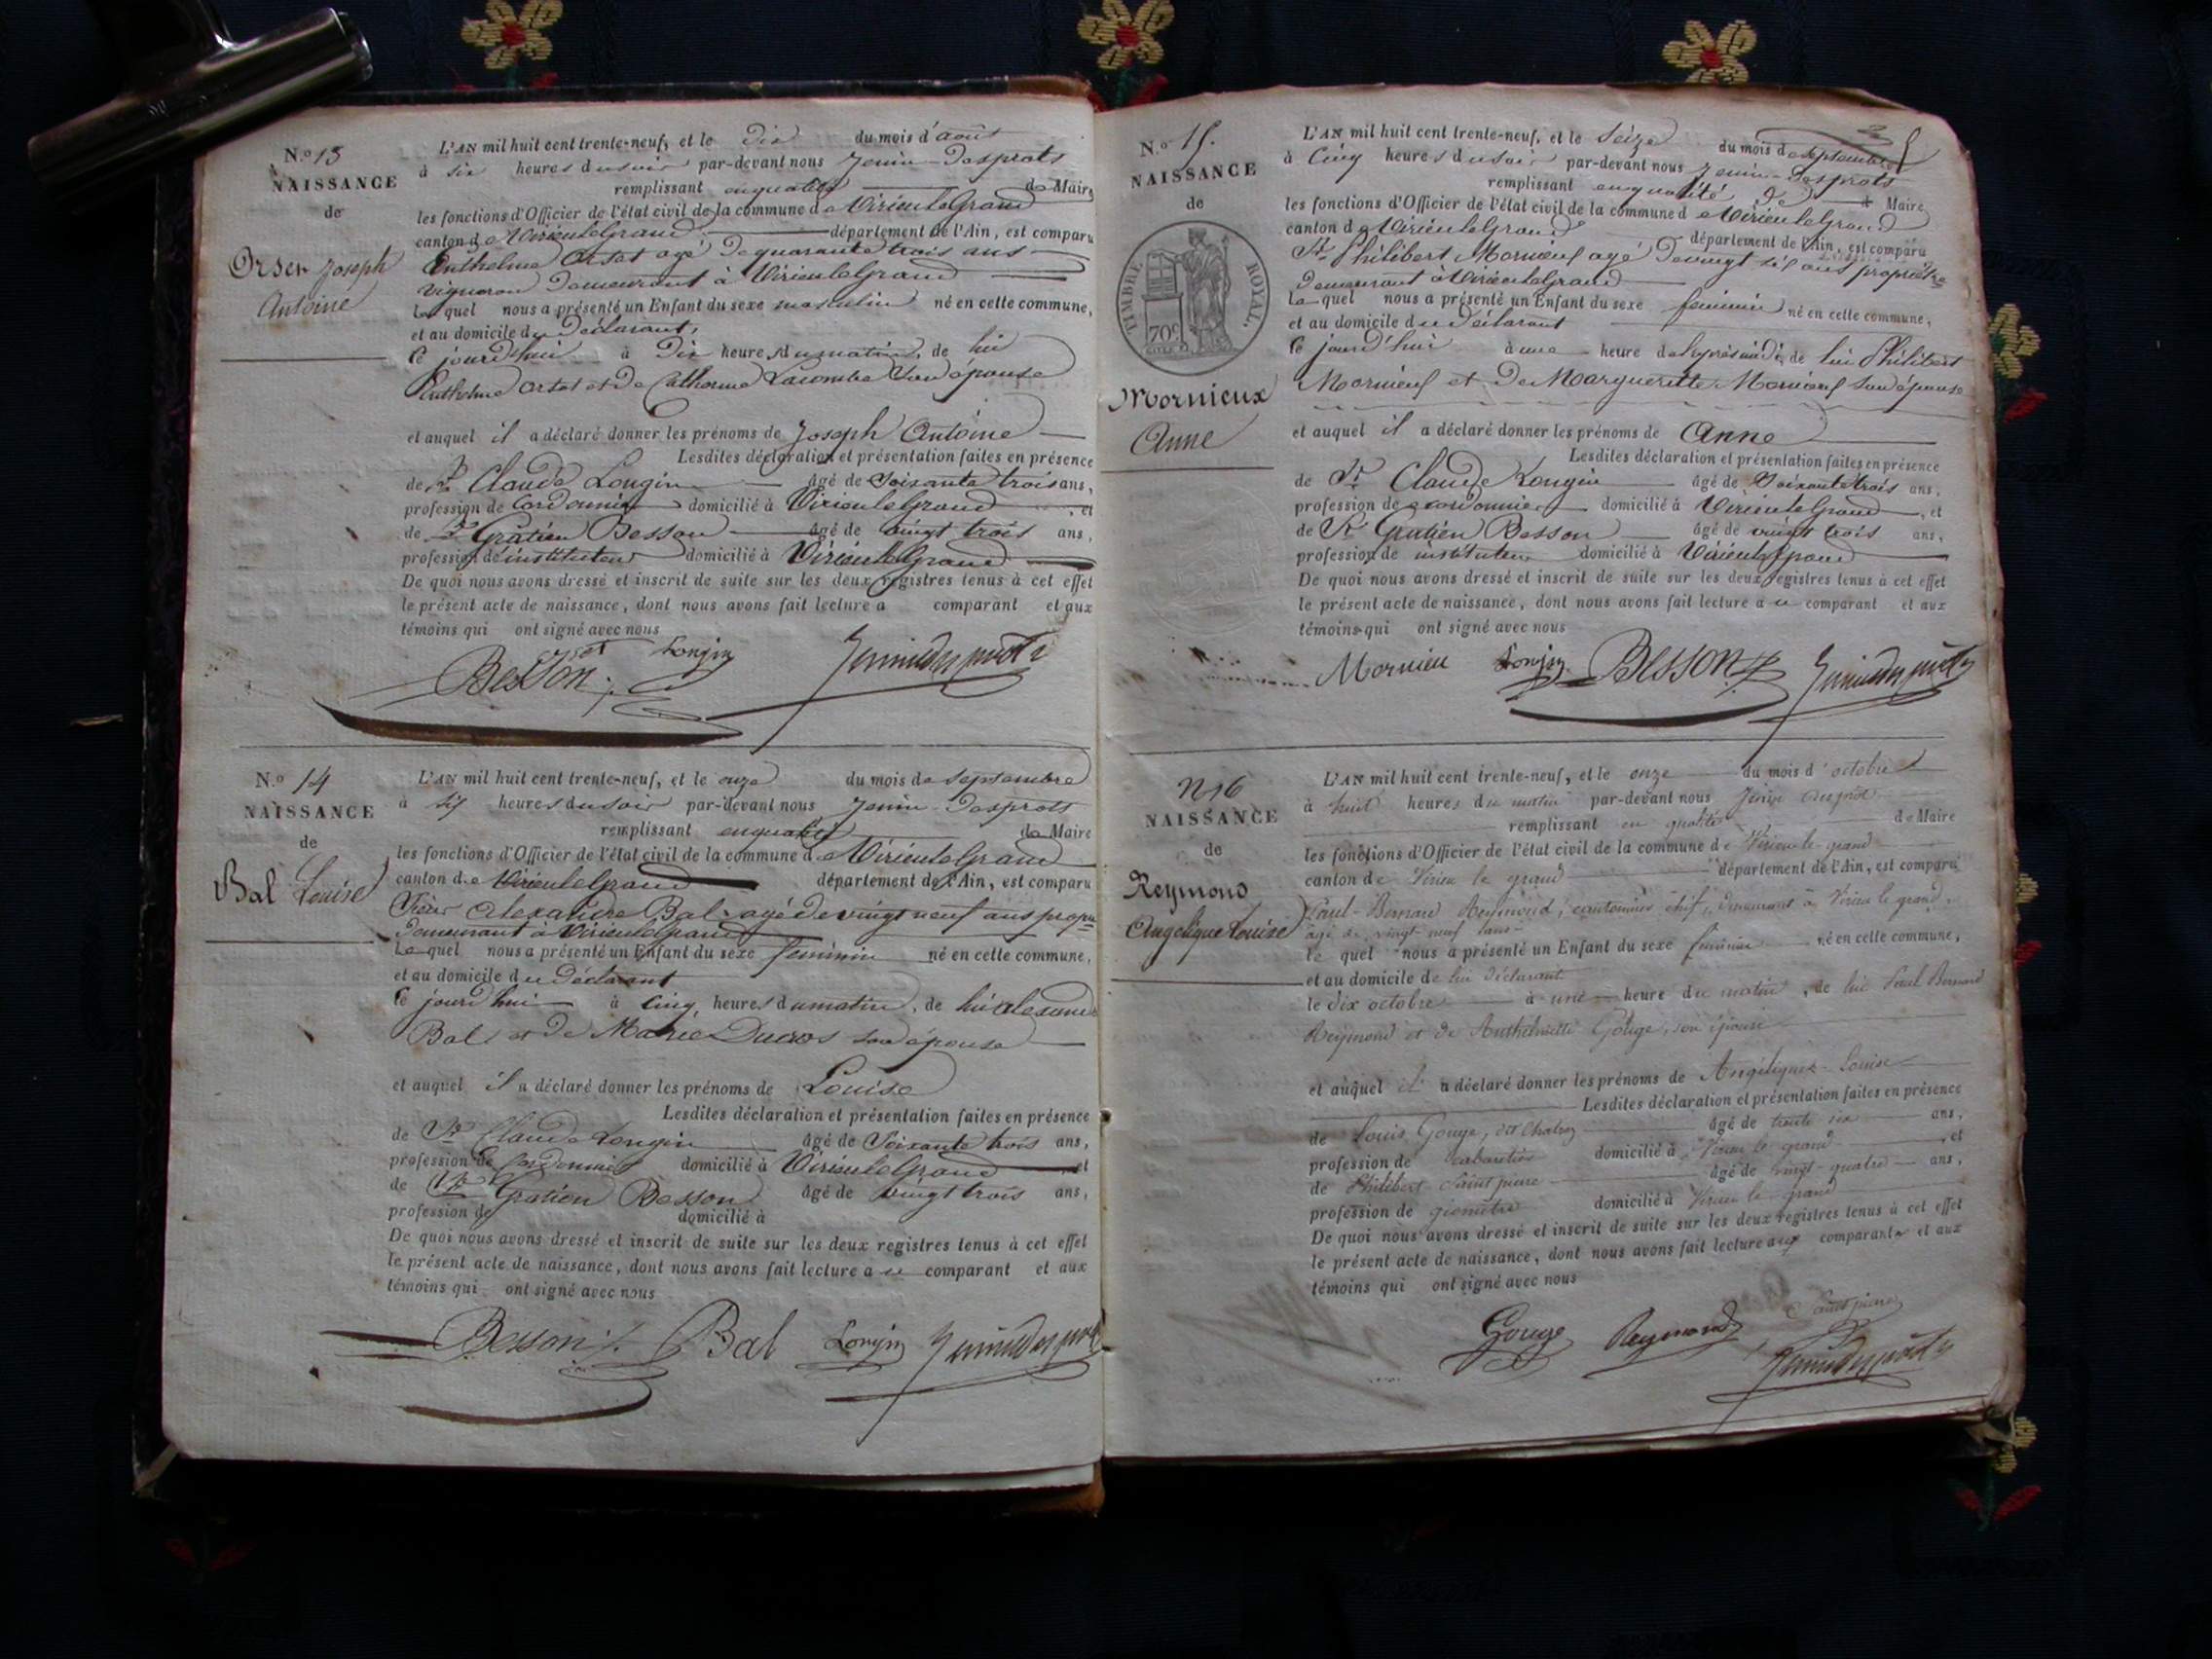 N.o 13
NAISSANCE
de
Orset Joseph
Antoine
L'AN mil huit cent trente-neuf, et le Dix du mois d'août
à six heures du soir par-devant nous Jenin Desprots
remplissant en qualité de Maire
les fonctions d'Officier de l'état civil de la commune de Virieu le Grand
canton de Virieu le Grand département de l'Ain, est comparu
Anthelme Orset agé de quarante trois ans
vigneron demeurant à Virieu le Grand
Lequel nous a présenté un Enfant du sexe masculin né en cette commune,
et au domicile du Déclarant,
Ce jourd'hui à Dix heures du matin, de lui
Anthelme Orset et de Catherine Lacombe son épouse
et auquel il a déclaré donner les prénoms de Joseph Antoine
Lesdites déclaration et présentation faites en présence
de Sr Claude Longin âgé de Soixante trois ans,
profession de Cordonnier domicilié à Virieu le Grand, et
de Sr Gratien Besson âgé de vingt trois ans,
profession de instituteur domicilié à Virieu le Grand
De quoi nous avons dressé et inscrit de suite sur les deux registres tenus à cet effet
le présent acte de naissance, dont nous avons fait lecture a comparant et aux
témoins qui ont signé avec nous
Besson Longin Jenin Desprots
N.o 14
NAISSANCE
de
Bal Louise
L'AN mil huit cent trente-neuf, et le onze du mois de Septembre
à six heures du soir par-devant nous Jenin Desprots
remplissant en qualité de Maire
les fonctions d'Officier de l'état civil de la commune de Virieu le Grand
canton de Virieu le Grand département de l'Ain, est comparu
Sieur Alexandre Bal agé de vingt neuf ans propre
demeurant à Virieu le Grand
Lequel nous a présenté un Enfant du sexe feminin né en cette commune,
et au domicile du Déclarant
Ce jourd'hui à Cinq heures du matin, de lui alexandre
Bal et de Marie Ducros son épouse
et auquel il a déclaré donner les prénoms de Louise
Lesdites déclaration et présentation faites en présence
de Sr Claude Longin âgé de Soixante trois ans,
profession de Cordonnier domicilié à Virieu le Grand et
de Sr Gratien Besson âgé de vingt trois ans,
profession de domicilié à
De quoi nous avons dressé et inscrit de suite sur les deux registres tenus à cet effet
le présent acte de naissance, dont nous avons fait lecture a ce comparant et aux
témoins qui ont signé avec nous
Besson Bal Longin Jenin Desprots
N.o 15.
NAISSANCE
de
TIMBRE ROYAL.
70c
Mornieux
Anne
L'AN mil huit cent trente-neuf, et le Seize du mois de Septembre
à Cinq heures du soir par-devant nous Jenin Desprots
remplissant en qualité de Maire
les fonctions d'Officier de l'état civil de la commune de Virieu le Grand
canton de Virieu le Grand département de l'Ain, est comparu
Sr Philibert Mornieux agé de vingt six ans propriétre
demeurant à Virieu le Grand
Lequel nous a présenté un Enfant du sexe feminin né en cette commune,
et au domicile du Déclarant
Ce jourd'hui à une heure de l'après midi, de lui Philibert
Mornieux et de Marguerite Mornieux son épouse
et auquel il a déclaré donner les prénoms de Anne
Lesdites déclaration et présentation faites en présence
de Sr Claude Longin âgé de Soixante trois ans,
profession de cordonnier domicilié à Virieu le Grand, et
de Sr Gratien Besson âgé de vingt trois ans,
profession de instituteur domicilié à Virieu le Grand
De quoi nous avons dressé et inscrit de suite sur les deux registres tenus à cet effet
le présent acte de naissance, dont nous avons fait lecture a ce comparant et aux
témoins qui ont signé avec nous
Mornieu Longin Besson Jenin Desprots
N 16
NAISSANCE
de
Reymond
Angelique Louise
L'AN mil huit cent trente-neuf, et le onze du mois d'octobre
à huit heures du matin par-devant nous Jenin Desprot
remplissant en qualité de Maire
les fonctions d'Officier de l'état civil de la commune de Virieu le grand
canton de Virieu le grand département de l'Ain, est comparu
Paul-Bernard Reymond, cantonnier chef, demeurant à Virieu le grand,
âgé de vingt neuf ans
le quel nous a présenté un Enfant du sexe feminin né en cette commune,
et au domicile de lui déclarant
le dix octobre à une heure du matin, de lui Paul Bernard
Reymond et de Anthelmette Gouge, son épouse
et auquel il a déclaré donner les prénoms de Angélique-Louise
Lesdites déclaration et présentation faites en présence
de Louis Gouge, dit Chatron âgé de trente six ans,
profession de cabaretier domicilié à Virieu le grand, et
de Philibert Saint pierre âgé de vingt-quatre ans,
profession de géomètre domicilié à Virieu le grand
De quoi nous avons dressé et inscrit de suite sur les deux registres tenus à cet effet
le présent acte de naissance, dont nous avons fait lecture aux comparants et aux
témoins qui ont signé avec nous
Gouge Reymond Saint pierre
Jenin Desprots